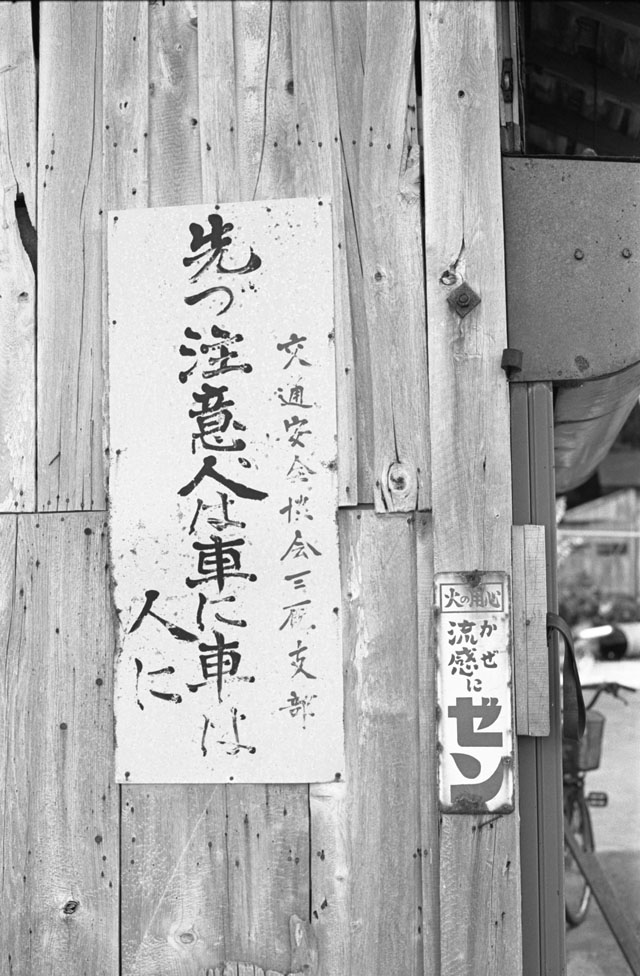 交通安全協会三原支部
先づ注意人は車に車は
人に
火の用心
かぜ
流感に
ゼン